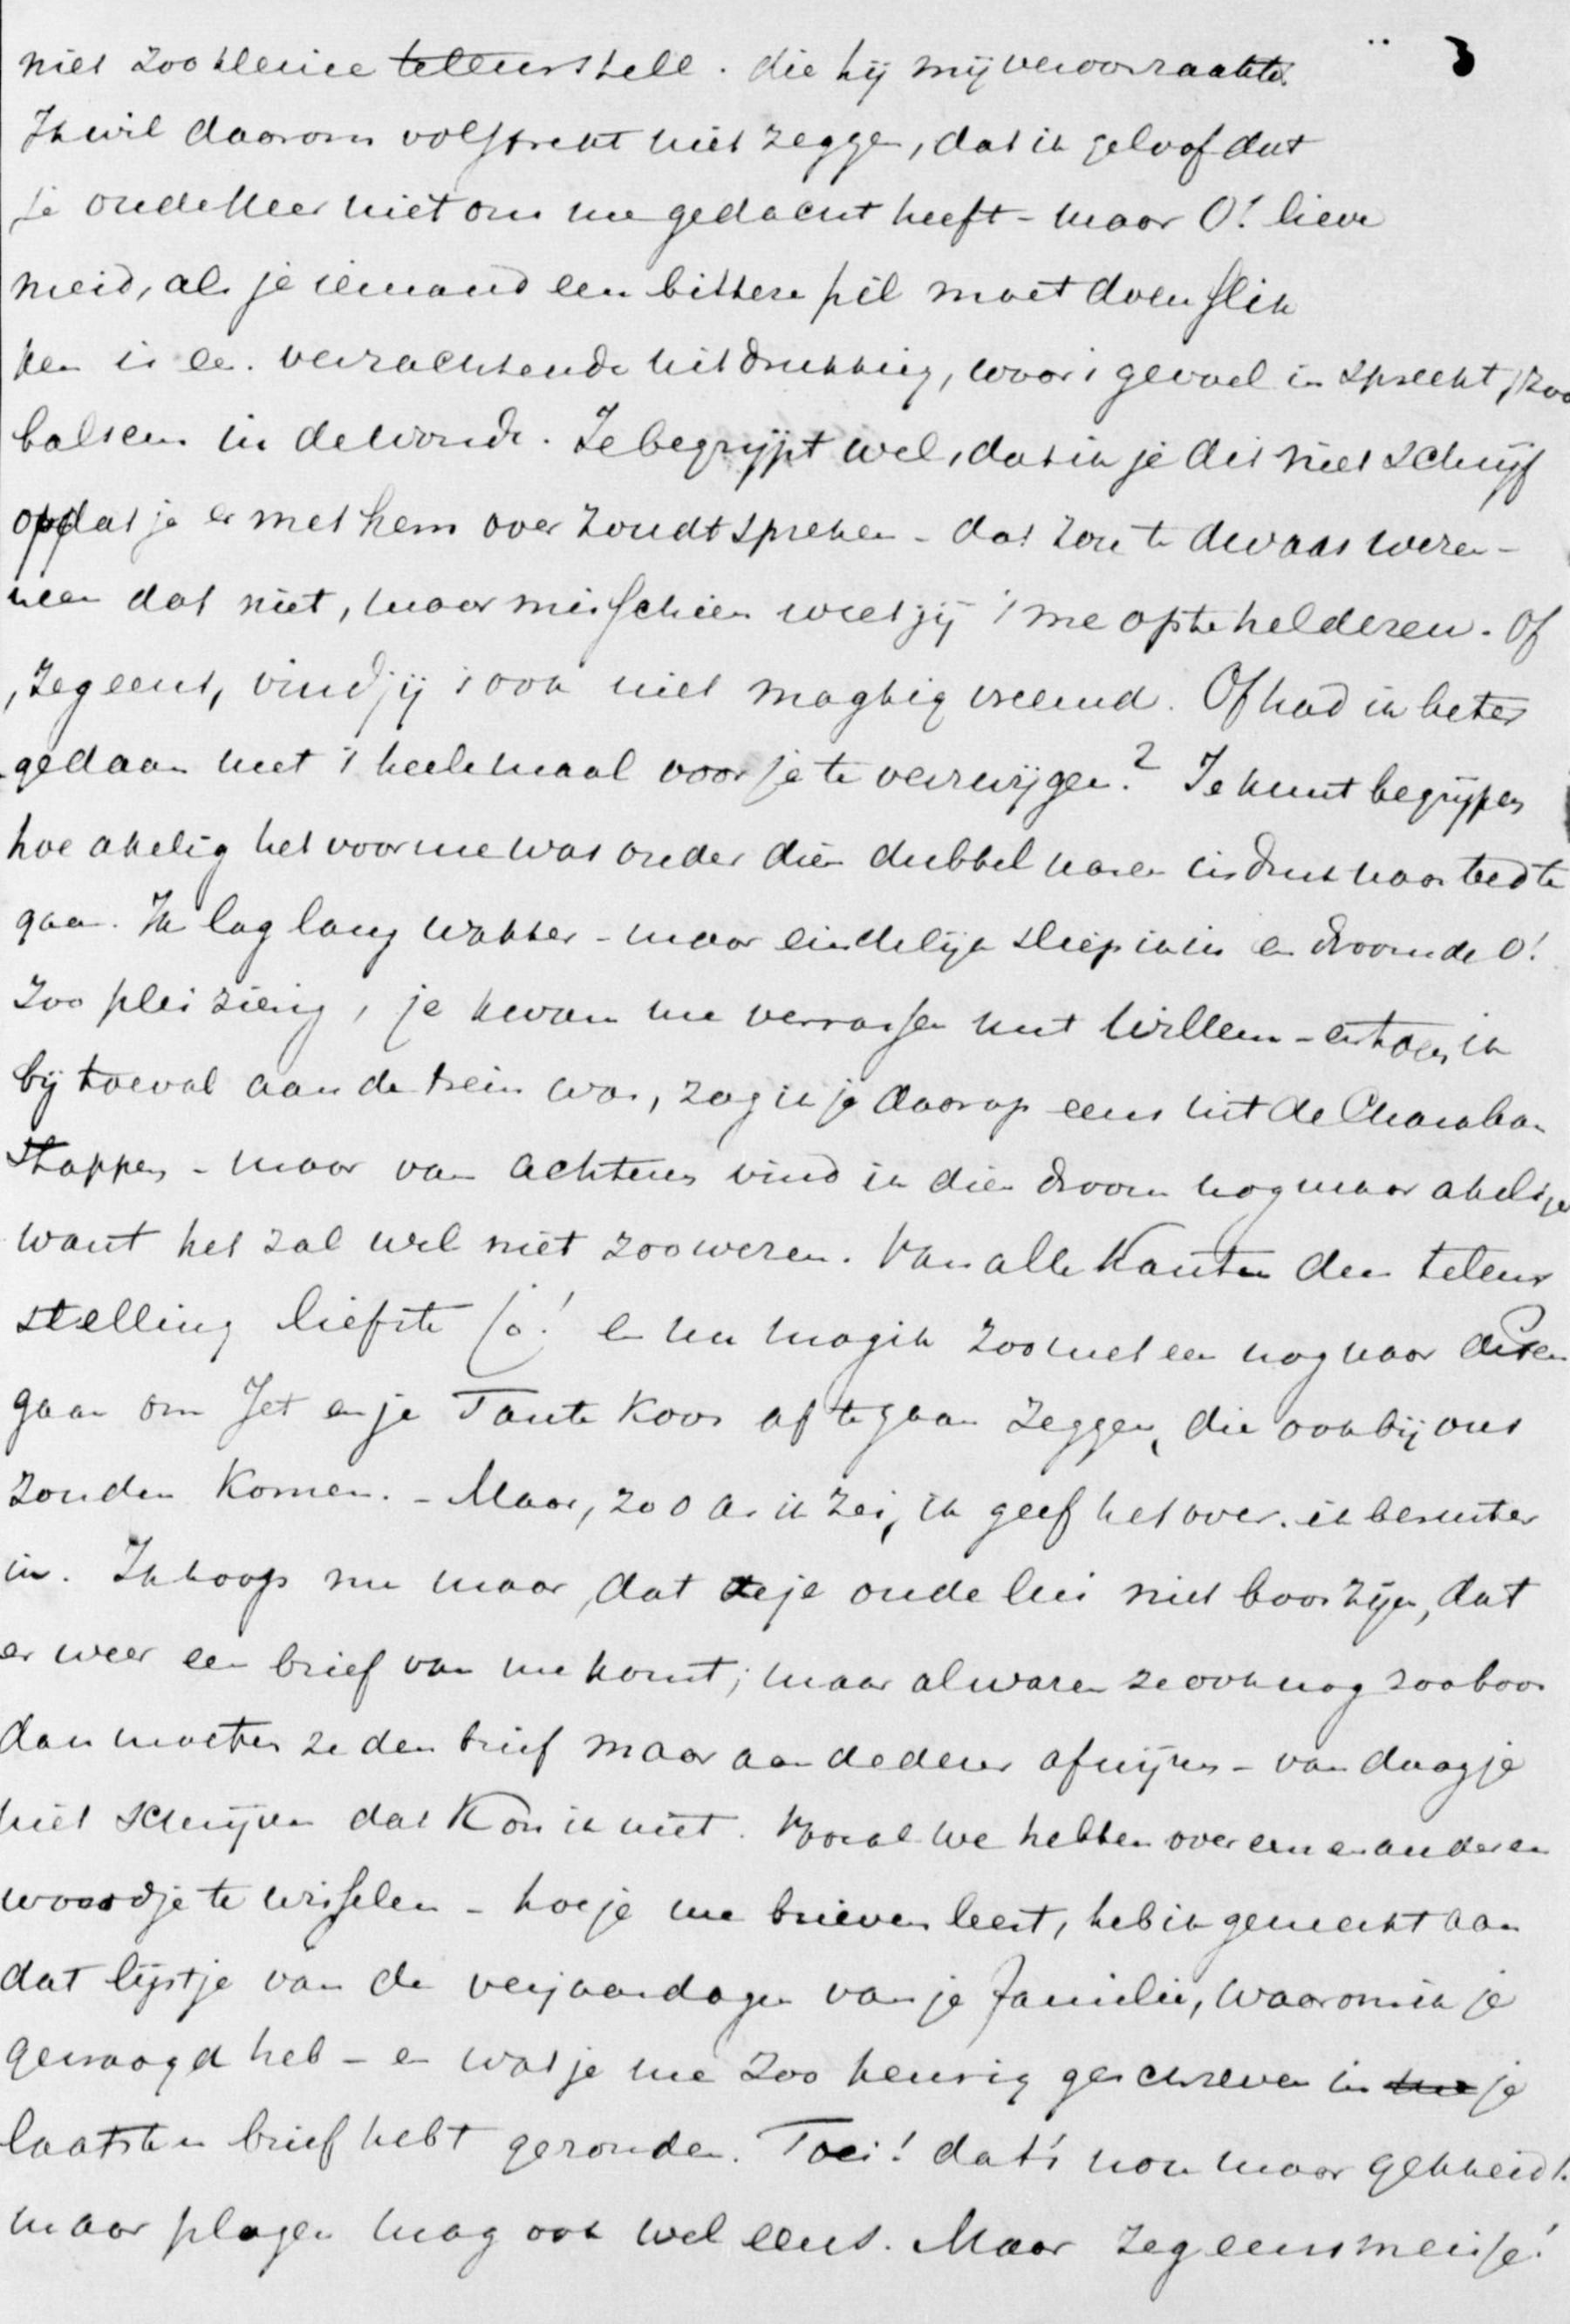 niet zoo kleine teleurstell. die hij mij veroorzaakte. 3
Ik wil daarom volstrekt niet zeggen, dat ik geloof dat
je oudeHeer niet om me gedacht heeft - maar O! lieve
meid, als je iemand een bittere pil moet doen slik
ken is een verzachtende uitdrukking, waar 's gevoel in spreekt, zoo
balsem in de wonde. Je begrijpt wel, dat ik je dit niet schrijf
opdat je er met hem over zoudt spreken - dat zou te dwaas wezen -
neen dat niet, maar misschien weet jij 't me op te helderen. Of
, zeg eens, vind jij 't ook niet magtig vreemd. Of had ik beter
gedaan met 't heelemaal voor je te verzwijgen? Je kunt begrijpen
hoe akelig het voor me was onder dien dubbel naren indruk naar bed te
gaan. Ik lag lang wakker - maar eindelijk sliep ik in en droomde O!
zoo pleizierig, je kwam me verrassen met Willem - en toen ik
bij toeval aan de trein was, zag ik je daar op eens uit de Charaban
stappen - maar van achteren vind ik dien droom nog maar akelig
want het zal wel niet zoo wezen. Van alle Kanten dus teleur
stelling liefste Jo! en nu mag ik zoo met een nog naar
gaan om Jet en je Tante Koos af te gaan zeggen, die ook bij ons
zouden Komen. - Maar, zoo als ik zei, ik geef het over. ik berust er
in. Ik hoop nu maar, dat je oude lui niet boos zijn, dat
er weer een brief van me komt; maar al waren ze ook nog zoo boos
dan moeten ze den brief maar aan de deur afwijzen - van daag je
niet schrijven dat Kon ik niet. Vooral we hebben over een en ander een
woordje te wisselen - hoe je me brieven leest, heb ik gemerkt aan
dat lijstje van de verjaardagen van je familie, waarom ik je
gevraagd heb - en wat je me zoo keurig geschreven in me je
laatsten brief hebt gezonden. Toei! dat's nou maar gekheid!
maar plagen mag ook wel eens. Maar zeg eens meisje!